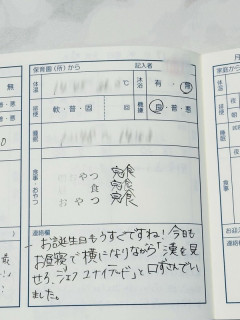 保育園(所)から
記入者
無
体温
℃
沐浴
有・無
排便
軟・普・固
回
機嫌
良・普・悪
睡眠
食事・おやつ
おやつ 完食
食 完食
おやつ 完食
連絡欄
お誕生日もうすぐですね!今日も
お昼寝で横になりながら「漢を見
せろ、ジェフ ユナイテッド」と口ずさんでい
ました。